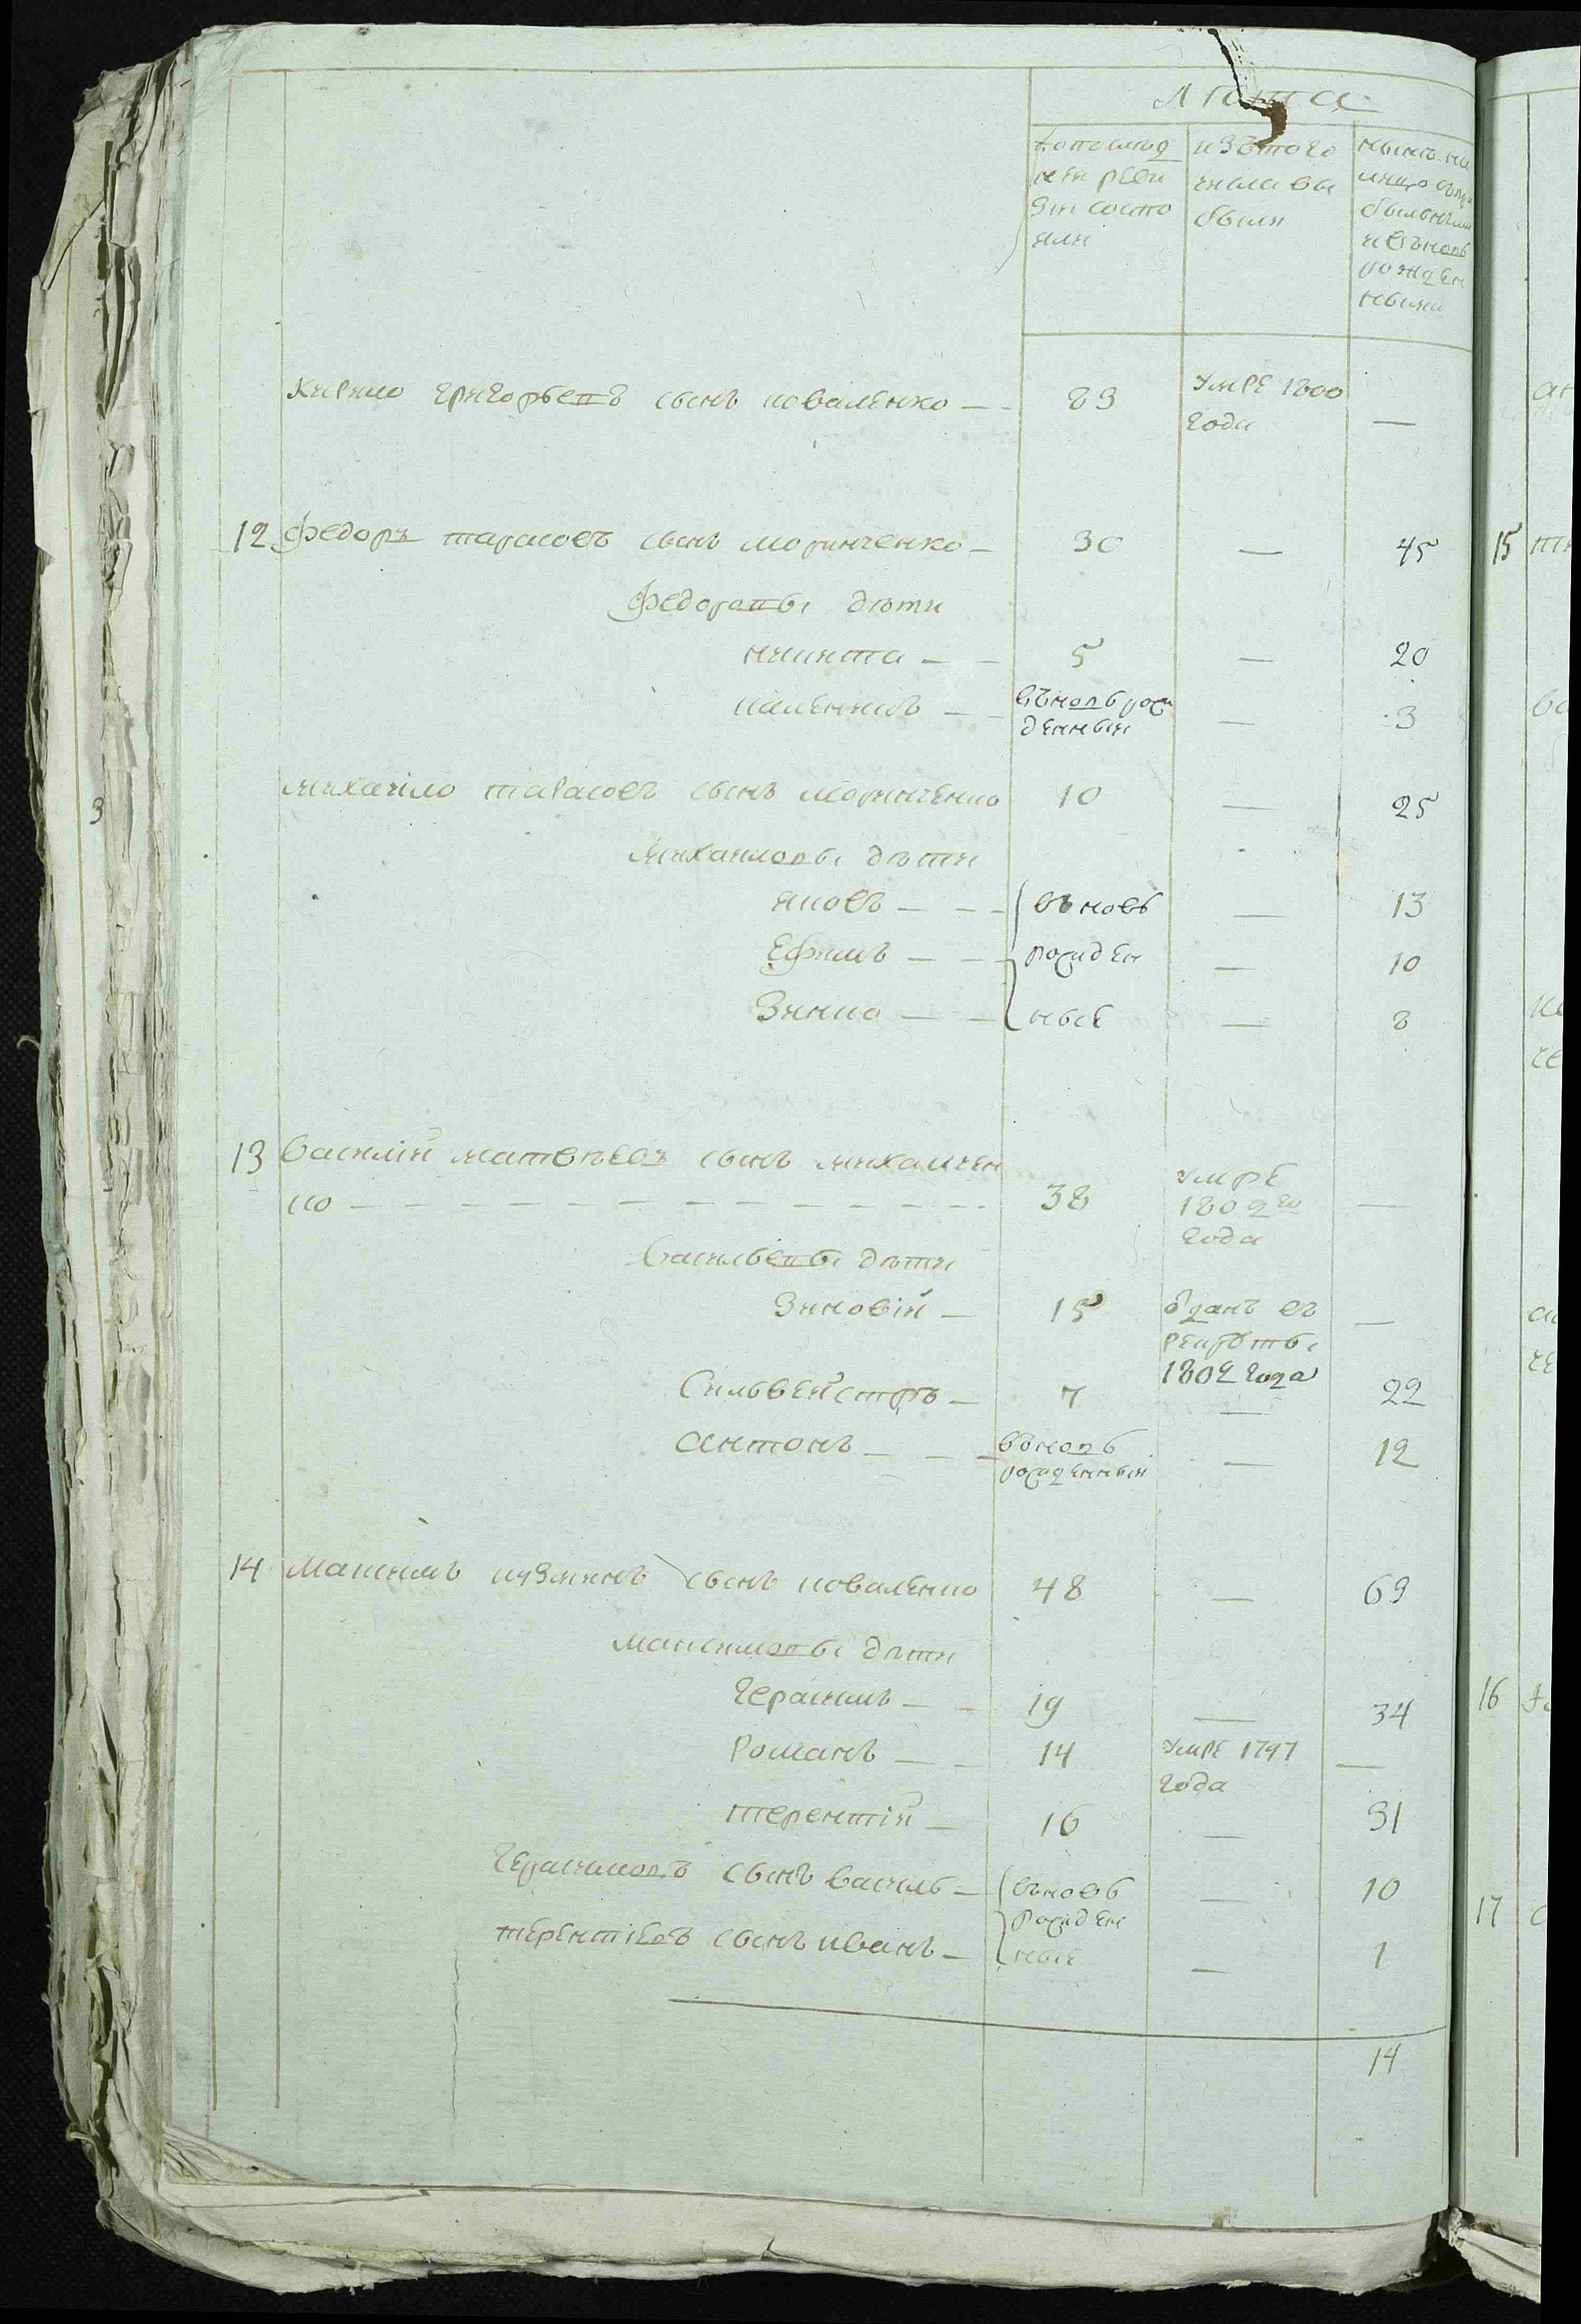 Лѣта
По послѣд
ней реви
зіи состо
яли
изъ того
числа вы
были
нынѣ на
лицо съ при
былыми
и вновь
рожден
ными
Кирило Григорьевъ сынъ Коваленко — 83 умре 1800
года —
12 Федоръ Тарасовъ сынъ Моринченко — 30 — 45
Федоровы дѣти
Никита — — 5 — 20
Каленикъ — — вновь рож — 3
денныи
Михаило Тарасовъ сынъ Моринченко 10 — 25
Михаиловы дѣти
Яковъ — — — вновь — 13
Ефимъ — — — рожден — 10
Зинко — — ные — 8
13 Василій Матвѣевъ сынъ Михалчен
ко — — — 38 умре
1809го —
года
Васильевы дѣти
Зиновій — 15 отданъ въ —
рекруты
1802 года
Сильвейстръ — 7 — 22
Антонъ — — — вновь — 12
рожденныи
14 Максимъ Кузминъ сынъ Коваленко 48 — 63
Максимовы дѣти
Герасимъ — — 19 — 34
Романъ — — 14 умре 1797 —
года
Терентій — 16 — 31
Герасимовъ сынъ Василь — вновь — 10
рожден
Терентіевъ сынъ Иванъ — ные — 1
14
15
16
17
3